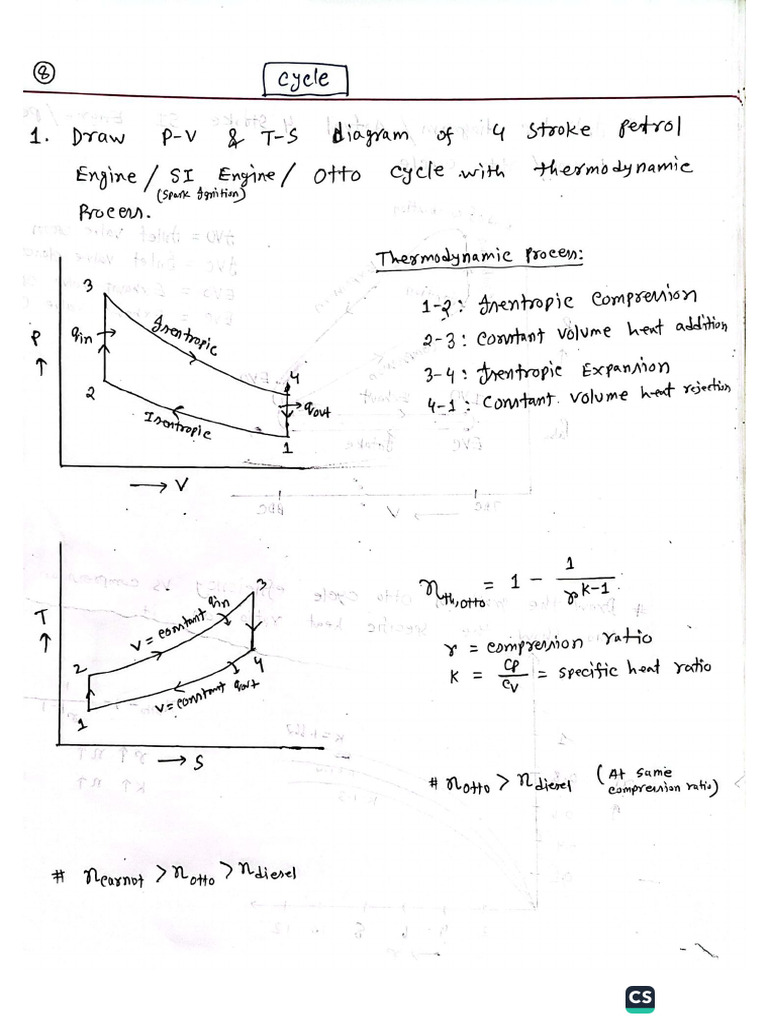 8
Cycle
1. Draw P-V & T-S diagram of 4 stroke petrol
Engine / SI Engine / Otto cycle with thermodynamic
(Spark Ignition)
Process.
Thermodynamic process:
1-2: Isentropic Compression
2-3: Constant volume heat addition
3-4: Isentropic Expansion
4-1: Constant volume heat rejection
P
↑
3
qin
2
Isentropic
Isentropic
4
qout
1
→ V
T
↑
3
2
1
4
V = constant qin
V = constant qout
→ S
ηth,otto = 1 - 1/r^(k-1)
r = compression ratio
K = Cp/Cv = specific heat ratio
# ηotto > ηdiesel (At same
compression ratio)
# ηcarnot > ηotto > ηdiesel
CS